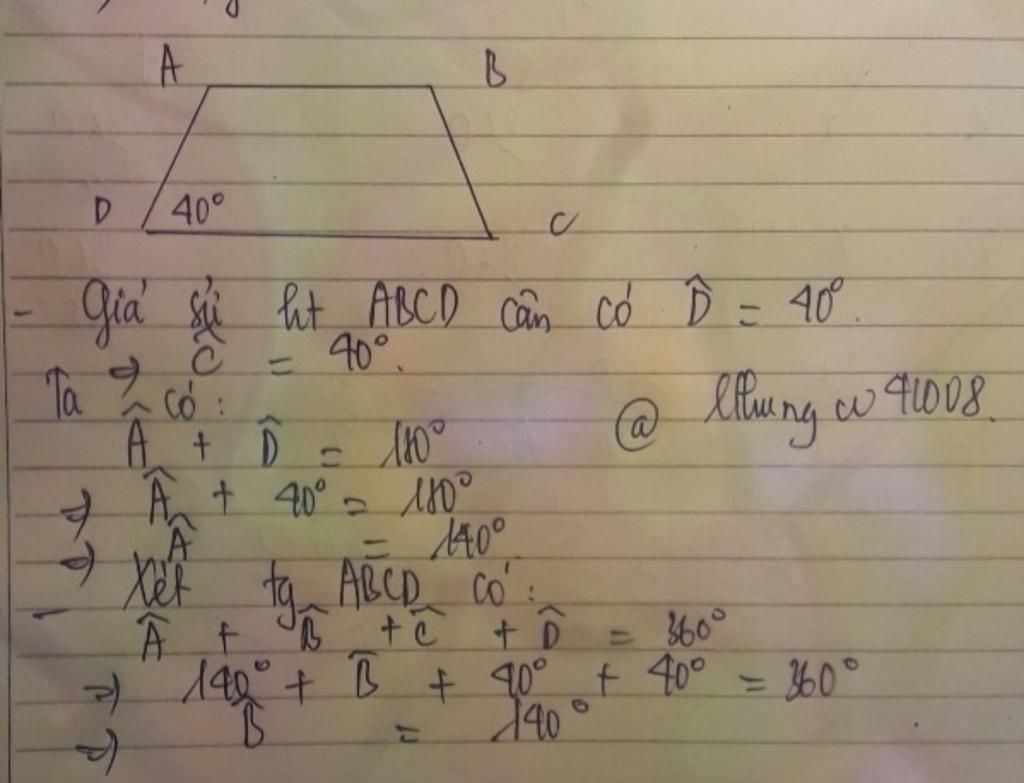 A B
D 40° C
- Giả sử ht ABCD cân có D̂ = 40°.
⇒ Ĉ = 40°.
Ta có:
Â + D̂ = 180°
@
⇒ Â + 40° = 180°
⇒ Â = 140°.
- Xét tg ABCD có:
Â + B̂ + Ĉ + D̂ = 360°
⇒ 140° + B̂ + 40° + 40° = 360°
⇒ B̂ = 140°